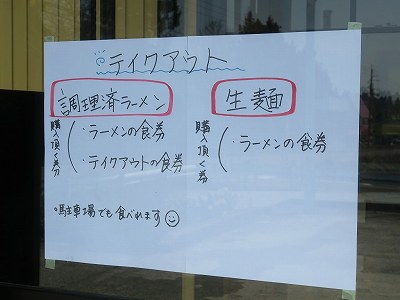 テイクアウト
調理済ラーメン
購入頂く券
・ラーメンの食券
・テイクアウトの食券
生麺
購入頂く券
・ラーメンの食券
◦駐車場でも食べれます